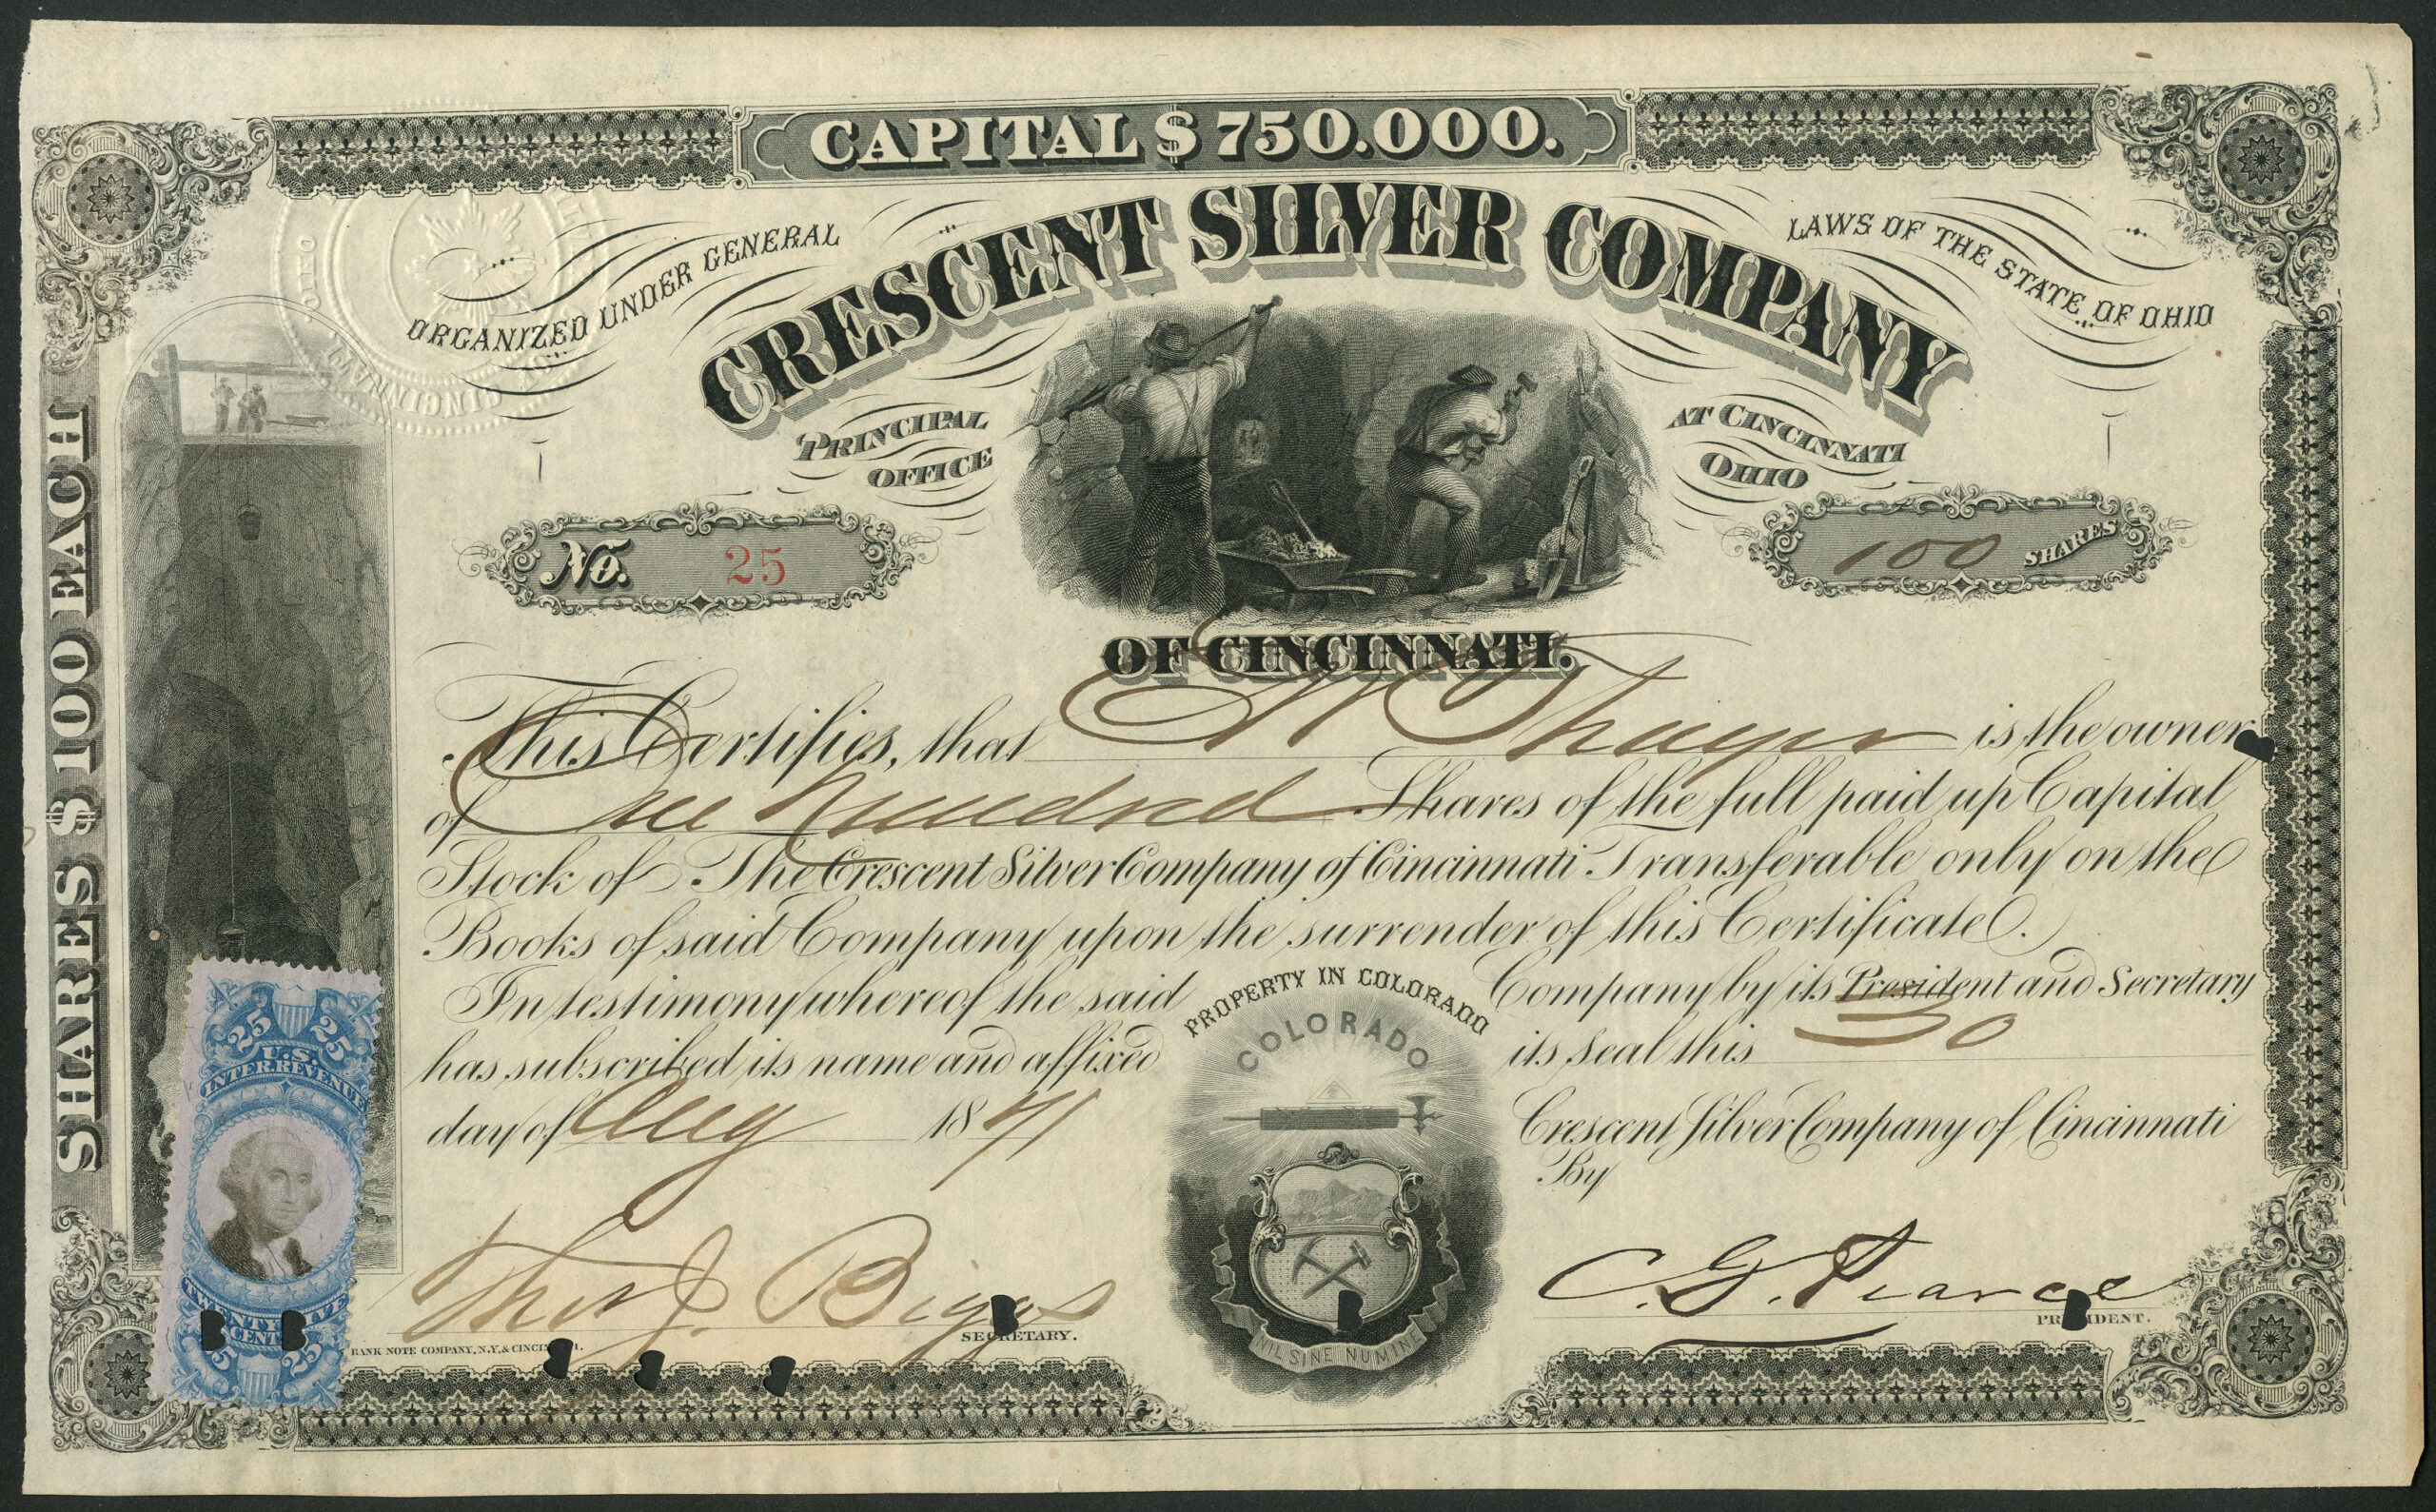 CAPITAL $750.000.
ORGANIZED UNDER GENERAL
LAWS OF THE STATE OF OHIO
CRESCENT SILVER COMPANY
PRINCIPAL
OFFICE
AT CINCINNATI
OHIO
No. 25
100 SHARES
OF CINCINNATI.
SHARES $100 EACH
This Certifies, that W Thayer is the owner
of One Hundred Shares of the full paid up Capital
Stock of The Crescent Silver Company of Cincinnati Transferable only on the
Books of said Company upon the surrender of this Certificate.
In testimony whereof the said Company by its President and Secretary
has subscribed its name and affixed its seal this 30
day of Aug 1871
PROPERTY IN COLORADO
COLORADO
NIL SINE NUMINE
Crescent Silver Company of Cincinnati
By
Thos J. Biggs
SECRETARY.
C. G. Pearce
PRESIDENT.
BANK NOTE COMPANY, N.Y. & CINCINNATI.
25 25
U.S.
INTER. REVENUE
TWENTY FIVE
CENTS
25 25
CINCINNATI
OHIO